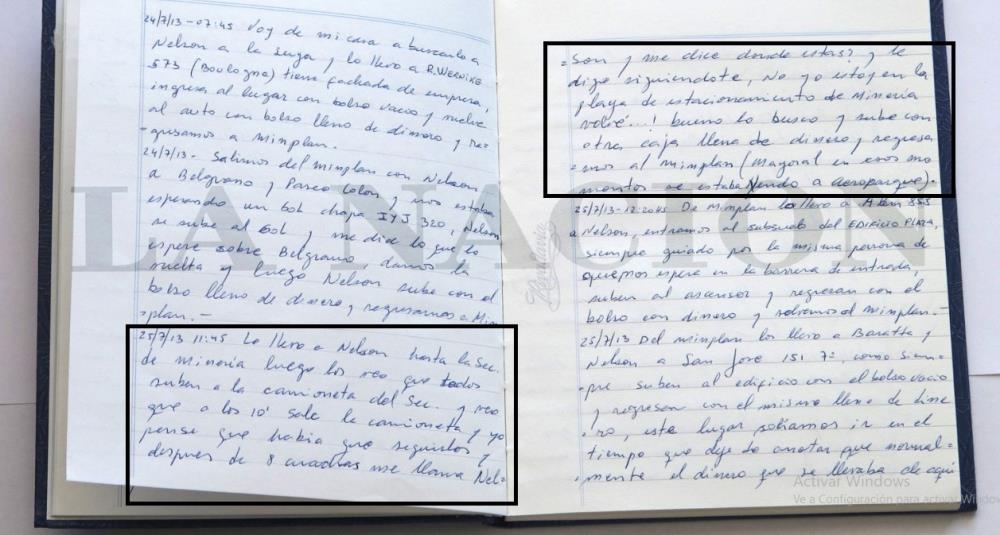 24/7/13-07:45 Voy de mi casa a buscarlo a
Nelson a la suya y lo llevo a R. WERNIKE
573 (Boulogne) tiene fachada de empresa,
ingresa al lugar con bolso vacio y vuelve
al auto con bolso lleno de dinero y re=
=gresamos a Minplan.
24/7/13- Salimos del minplan con Nelson
a Belgrano y Paseo Colon y nos estaba
esperando un Gol chapa IYJ 320, Nelson
se sube al Gol y me dice lo que lo
espere sobre Belgrano, damos la
vuelta y luego Nelson sube con el
bolso lleno de dinero y regresamos a Min
=plan.-
25/7/13 11:45 Lo llevo a Nelson hasta la Sec.
de mineria luego los veo que todos
suben a la camioneta del Sec. y veo
que a los 10' sale la camioneta y yo
pense que habia que seguirlos y
despues de 8 cuadras me llama Nel=
=son y me dice donde estas? y le
digo siguiendote, No yo estoy en la
playa de estacionamiento de Mineria
volvé...! bueno lo busco y sube con
otra caja llena de dinero y regresa
=mos al minplan (Mayoral en esos mo
mentos se estaba yendo a aeroparque).
25/7/13-12:20Hs De Minplan lo llevo a Alem 855
a Nelson, entramos al subsuelo del EDIFICIO PLAZA,
siempre guiado por la misma persona de
que nos espera en la barrera de entrada,
suben al ascensor y regresan con el
bolso con dinero y volvemos al minplan.-
25/7/13 Del minplan los llevo a Baratta y
Nelson a San José 151 7º, como siem=
=pre suben al edificio con el bolso vacio
y regresan con el mismo lleno de dine
=ro, este lugar soliamos ir en el
tiempo que deje de anotar que normal=
=mente el dinero que se llevaba de aqui
LA NACION
Activar Windows
Ve a Configuración para activar Windows